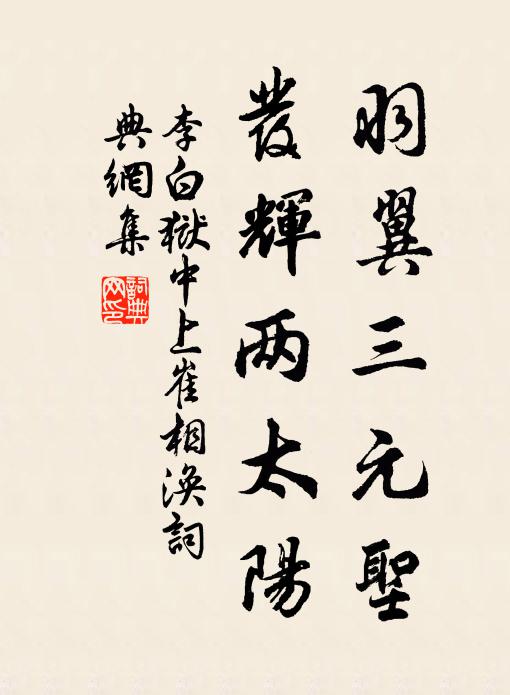 羽翼三元聖
發輝两太陽
李白獄中上崔相渙詞
典網集
詞典网印